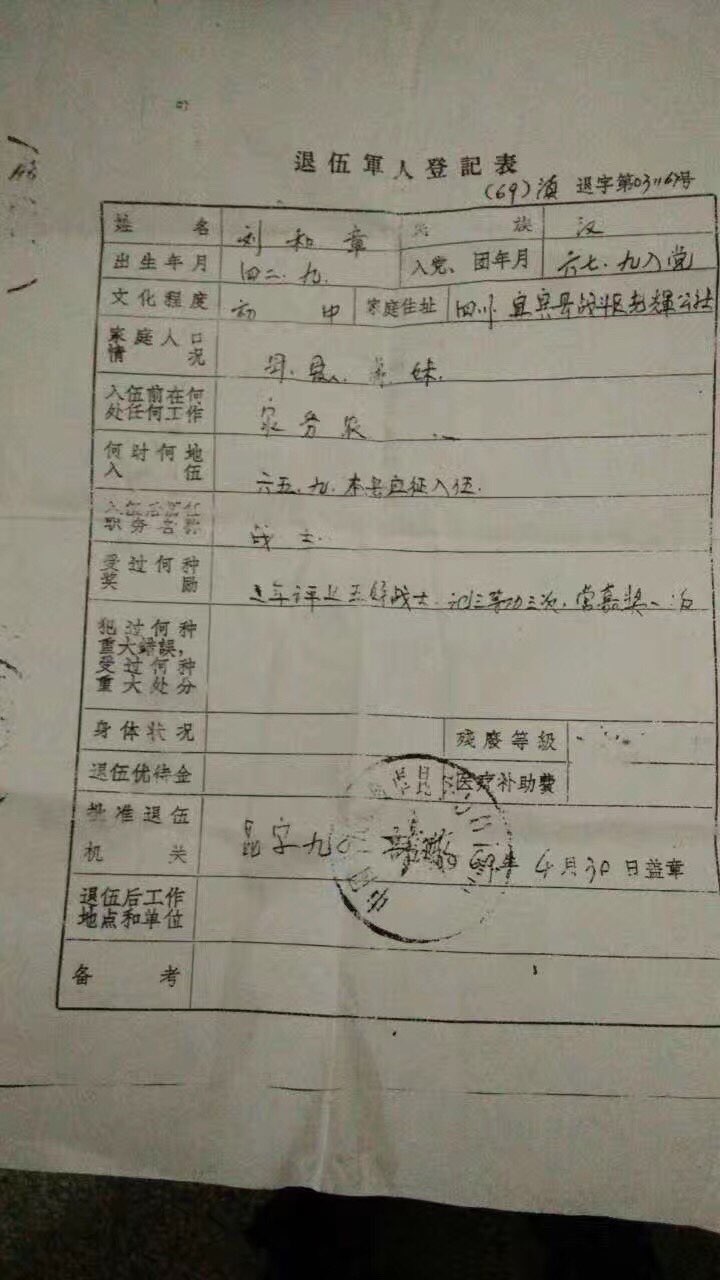 退伍軍人登記表
(69)滇 退字第03116号
姓名 刘和章 民族 汉
出生年月 四二.九. 入党、团年月 六七.九入党
文化程度 初中 家庭住址 四川宜宾县战斗区 公社
家庭人口情况 母. 妹.
入伍前在何处任何工作 家务农
何时何地入伍 六五.九.本县应征入伍.
入伍后曾任职务名称 战士.
受过何种奖励 战士.记三等功三次.
犯过何种重大錯誤,受过何种重大处分
身体状况 残廢等級
退伍优待金 医疗补助費
批准退伍机关 昆字九 69年4月30日盖章
退伍后工作地点和单位
备考